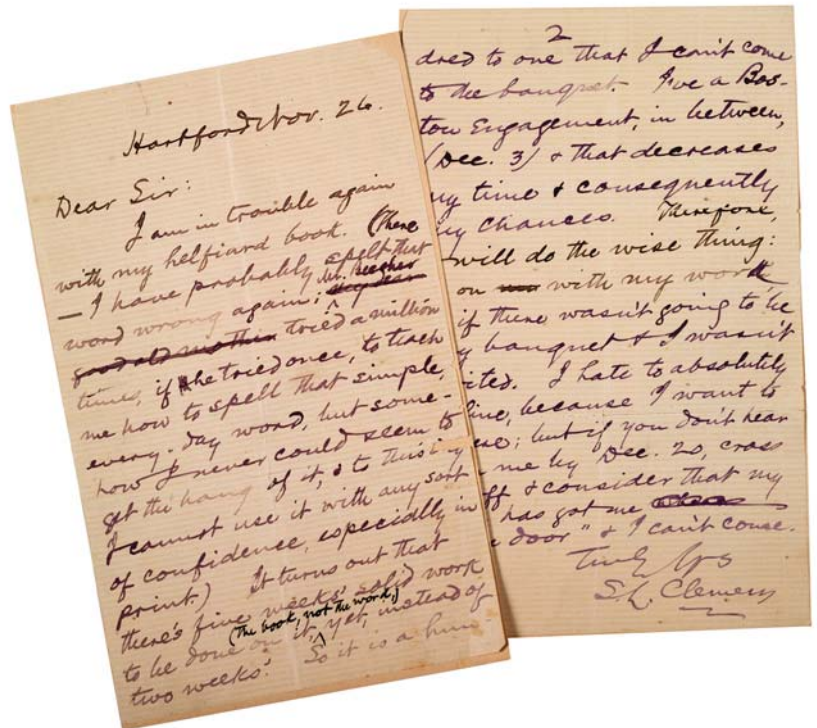 Hartford Nov. 26.
Dear Sir:
I am in trouble again
with my helfiard book. (There
— I have probably spelt that
word wrong again; Mr. Beecher
tried a million
times, if he tried once, to teach
me how to spell that simple,
every-day word, but some-
how I never could seem to
get the hang of it, & to this
I cannot use it with any sort
of confidence, especially in
print.) It turns out that
there's five weeks' solid work
(The book, not the word,)
to be done on it, yet, instead of
two weeks'. So it is a hun-
2
dred to one that I can't come
to the banquet. I've a Bos-
ton Engagement, in between,
(Dec. 3) & that decreases
my time & consequently
my chances. Therefore,
will do the wise thing:
on with my word
if there wasn't going to be
banquet & I wasn't
ited. I hate to absolutely
line, because I want to
but if you don't hear
me by Dec. 20, cross
& consider that my
has got me
door" & I can't come.
Truly Yrs
S. L. Clemens